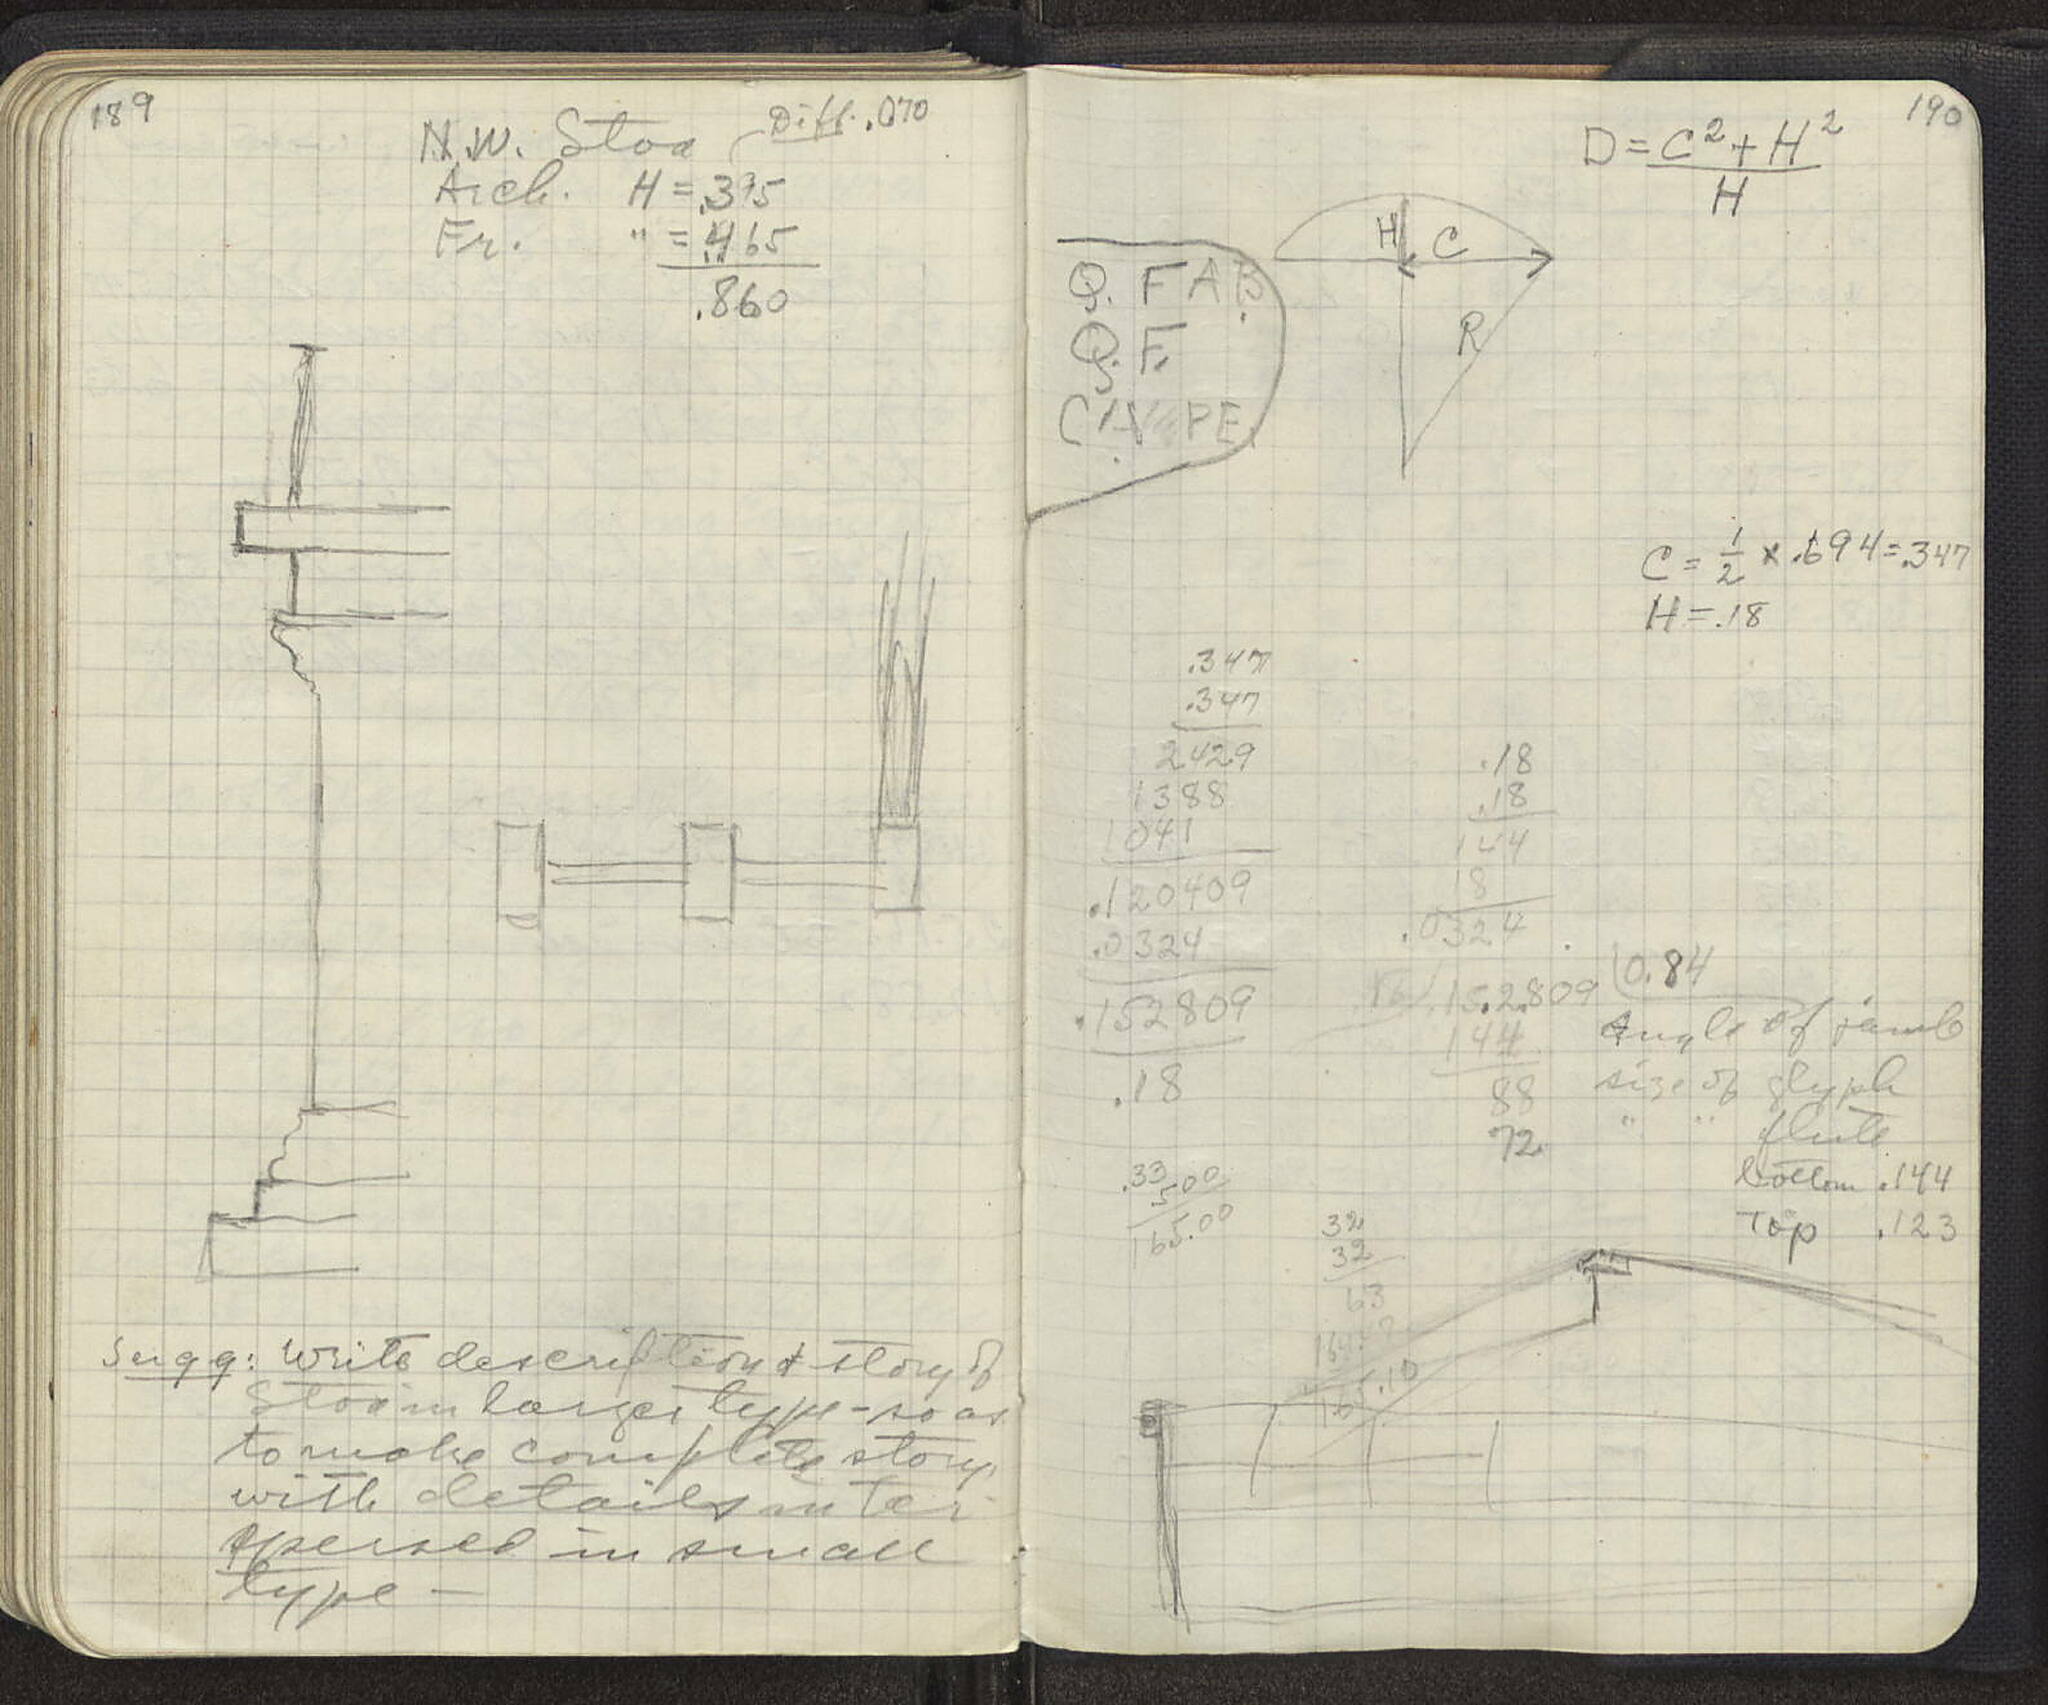 189
N.W. Stoa
Diff. .070
Arch. H = .395
Fr. " = .465
.860
Sugg: Write description & story of
Stoa in larger type - so as
to make complete story,
with details inter
spersed in small
type -
190
D = C² + H²
H
H C
R
Q. F A B.
Q. F.
C = 1/2 × .694 = .347
H = .18
.347
.347
2429
1388
1041
.120409
.0324
.152809
.18
.18
.18
144
18
.0324
.152.809
144
88
72
0.84
Angle of jamb
size of glyph
" " flute
bottom .144
Top .123
.33
500
165.00
32
32
63
165.10